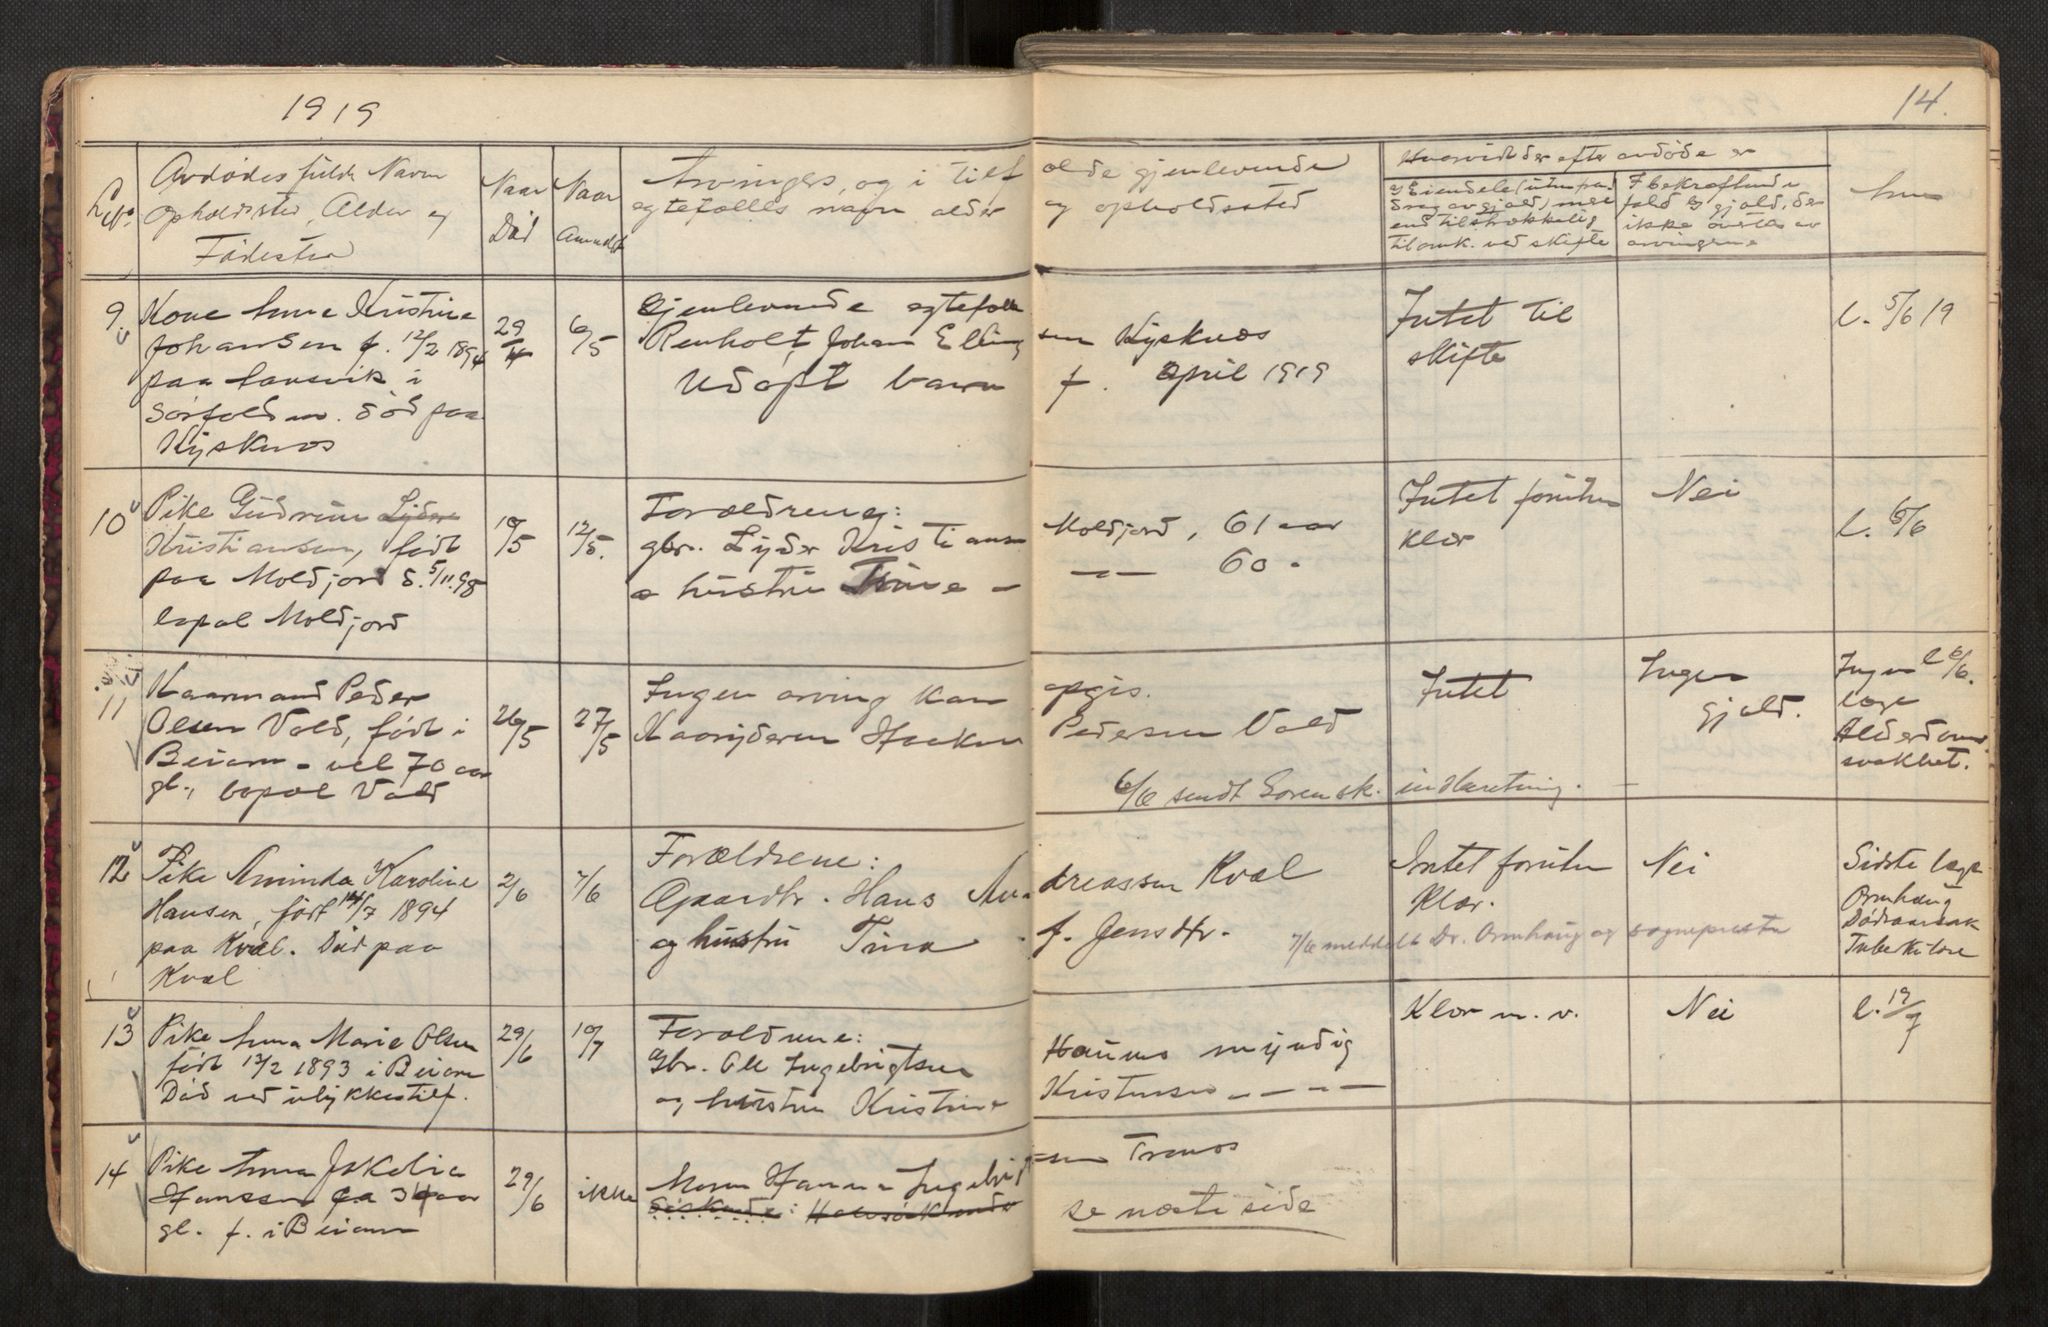 1919
14.
Lnr.
Avdødes fulde Navn
opholdssted, Alder og
Fødested
Naar
Død
Naar
Anmeldt
Arvingers, og i tilf
ælde gjenlevende
egtefælles navn alder
og opholdssted
Hvorvidt der efter avdøde er
1) Eiendele (utenfra
drag av gjæld) mere
end tilstrækkelig
til omk. ved skifte
I bekræftende
fald og gjæld, der
ikke overtas av
arvingerne
9.
Kone Anna Kristine
Johansen f. 12/2 1894
paa
i
Sørfolden. Død paa
Kjysknes
29/4
6/5
Gjenlevende egtefælle
Renholt Johan Elling
sen Kjysknes
Udøpt barn
f. April 1919
Intet til
skifte
l. 5/6 19
10
Pike Gudrun Lyder
Kristiansen, født
paa Moldjord d. 5/11.98
bopæl Moldjord
10/5
12/5.
Forældrene:
gbr. Lyder Kristiansen
Moldjord, 61 aar
o hustru Trine —
— — 60 -
Intet foruten
klær
Nei
l. 6/6
11
Kaarmand Peder
Olsen Vold, født i
Beiarn - vel 70 aar
gl., bopæl Vold
26/5
27/5
Ingen arving kan
opgis.
Kaaryderen Haakon
Pedersen Vold
6/6 sendt Sorensk. indberetning. —
Intet
Ingen
gjæld.
Ingen l. 6/6.
læge
Alderdoms
svakhet.
12
Pike Aminda Karoline
Hansen, født 14/7 1894
paa Kvæl. Død paa
Kvæl
2/6
7/6
Forældrene:
Gaardbr. Hans An-
dreassen Kvæl
og hustru Tina
f. Jensdtr.
7/6 meddelt Dr. Ormhaug og sognepresten
Intet foruten
Klær.
Nei
Sidste læge
Ormhaug
Dødsaarsak
Tuberkulose
13
Pike Anna Marie Olsen
født 12/2 1893 i Beiarn
Død ved ulykkestilf.
29/6
10/7
Forældrene:
Gbr. Ole Ingebrigtsen
myndig
og hustru Kristine
Kristensen — - - —
Klær m. v.
Nei
l. 19/7
14
Pike Anna Jskelia
Hanssen ca 34 aar
gl. f. i Beiarn
29/6
ikke
Moren Hanna Ingebrigt
sen Trones
Søskende: Halvsøskende
se næste side